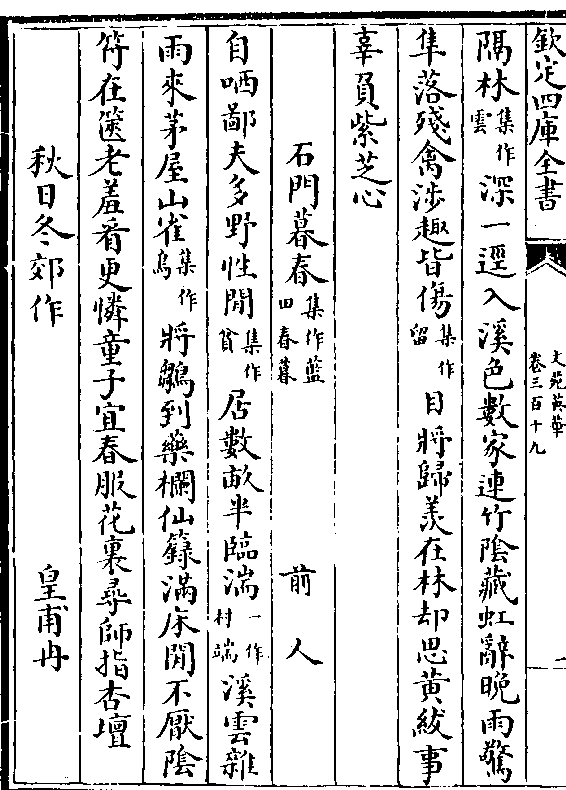 欽定四庫全書
文苑英華
卷三百十九
隔林集作雲深一逕入溪色數家連竹陰藏虹辭晚雨驚
隼落殘禽涉趣皆傷集作留目將歸羨在林却思黃綬事
辜負紫芝心
石門暮春集作藍田春暮 前人
自哂鄙夫多野性閒集作貧居數畝半臨湍一作村端溪雲雜
雨來茅屋山雀集作烏將鶵到藥欄仙籙滿床閒不厭陰
符在篋老羞看更憐童子宜春服花裏尋師指杏壇
秋日冬郊作 皇甫冉